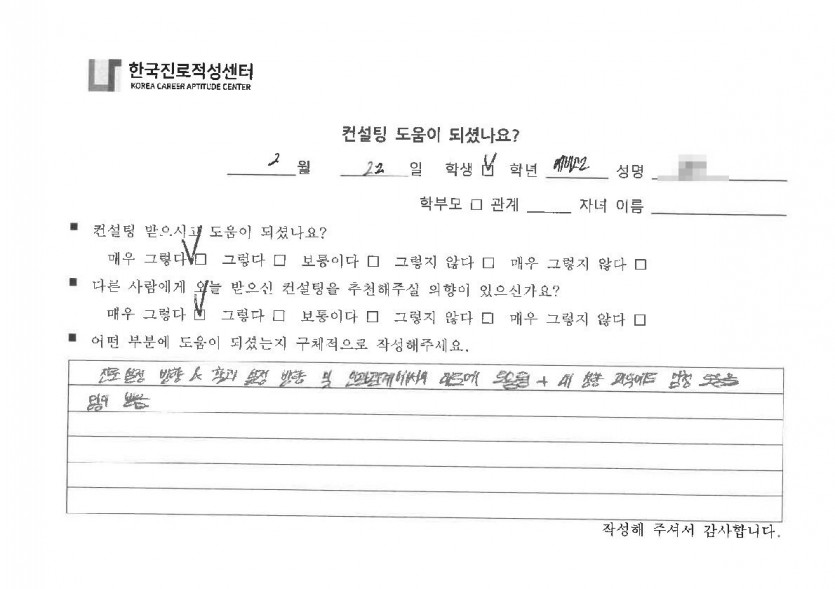 한국진로적성센터
KOREA CAREER APTITUDE CENTER
컨설팅 도움이 되셨나요?
2 월 22 일 학생 ☑ 학년 예비고2 성명
학부모 □ 관계 자녀 이름
■ 컨설팅 받으시고 도움이 되셨나요?
매우 그렇다 ☑ 그렇다 □ 보통이다 □ 그렇지 않다 □ 매우 그렇지 않다 □
■ 다른 사람에게 오늘 받으신 컨설팅을 추천해주실 의향이 있으신가요?
매우 그렇다 ☑ 그렇다 □ 보통이다 □ 그렇지 않다 □ 매우 그렇지 않다 □
■ 어떤 부분에 도움이 되셨는지 구체적으로 작성해주세요.
진로 설정 방향 & 학과 설정 방향 및 인간관계에서의 도움됨 + 내 성향 파악에도 엄청 도움을
많이 받음
작성해 주셔서 감사합니다.